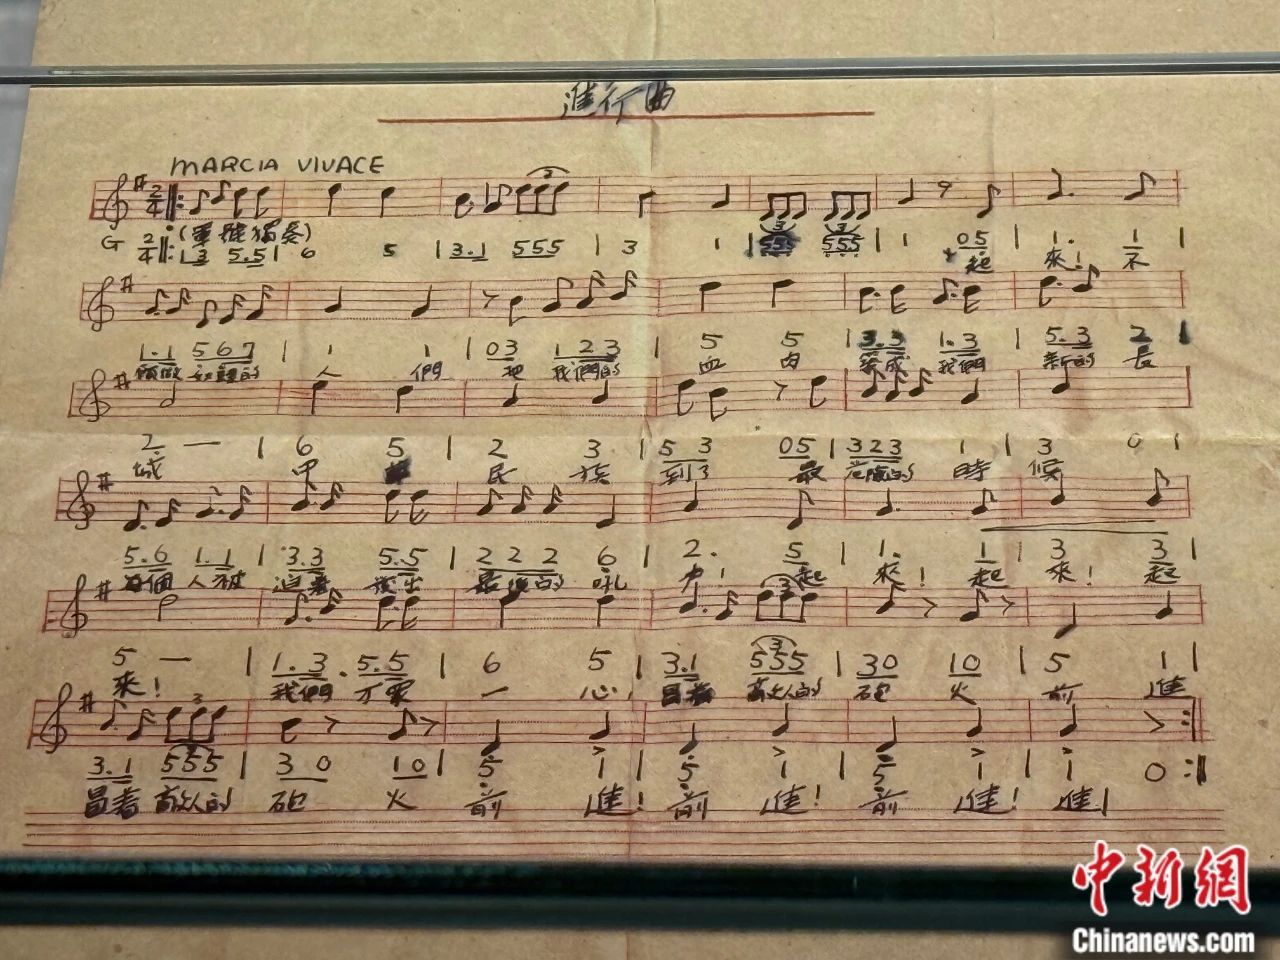 進行曲
MARCIA VIVACE
2/4
(軍號獨奏)
G 2/4 ‖: 1.3 5.5 | 6 5 | 3.1 555 | 3 1 | 555 555 | 1 05 | 1. 1 |
起 來! 不
1.1 567 | 1 1 | 03 123 | 5 5 | 3.3 1.3 | 5.3 2 |
願做 奴隸的 人 們 把 我們的 血 肉 築成 我們 新的 長
2 — | 6 5 | 2 3 | 53 05 | 323 1 | 3 0 |
城 中 民 族 到了 最 危險的 時 候
5.6 1.1 | 3.3 5.5 | 222 6 | 2. 5 | 1. 1 | 3 3 |
每個 人被 迫着 發出 最後的 吼 力! 起 來! 起 來! 起
5 — | 1.3 5.5 | 6 5 | 3.1 555 | 30 10 | 5 1 |
來! 我們 万眾 一 心, 冒着 敵人的 砲 火 前 進
3.1 555 | 30 10 | 5 1 | 5 1 | 5 1 | 1 0 :‖
冒着 敵人的 砲 火 前 進! 前 進! 前 進! 進!
中新網
Chinanews.com